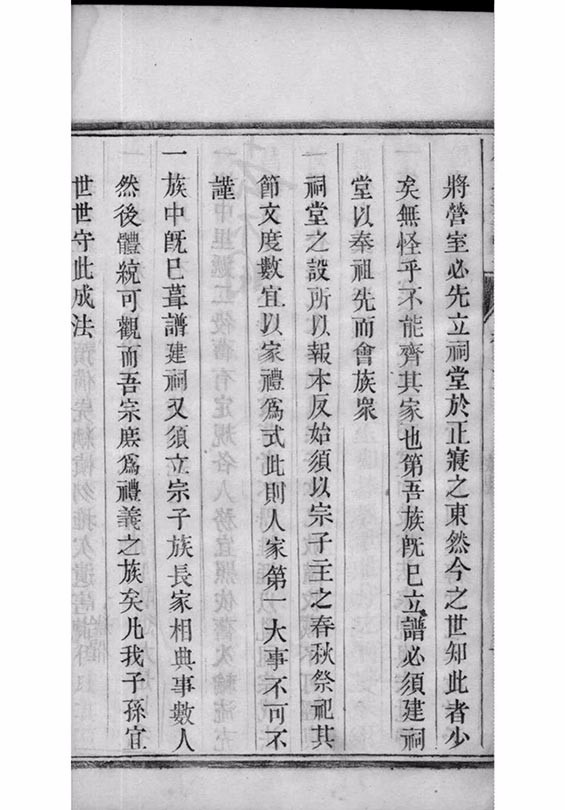 將營室必先立祠堂於正寢之東然今之世知此者少
矣無怪乎不能齊其家也第吾族旣巳立譜必須建祠
堂以奉祖先而會族衆
一祠堂之設所以報本反始須以宗子主之春秋祭祀其
節文度數宜以家禮爲式此則人家第一大事不可不
謹
一族中旣巳葺譜建祠又須立宗子族長家相典事數人
然後體統可觀而吾宗庶爲禮義之族矣凡我子孫宜
世世守此成法